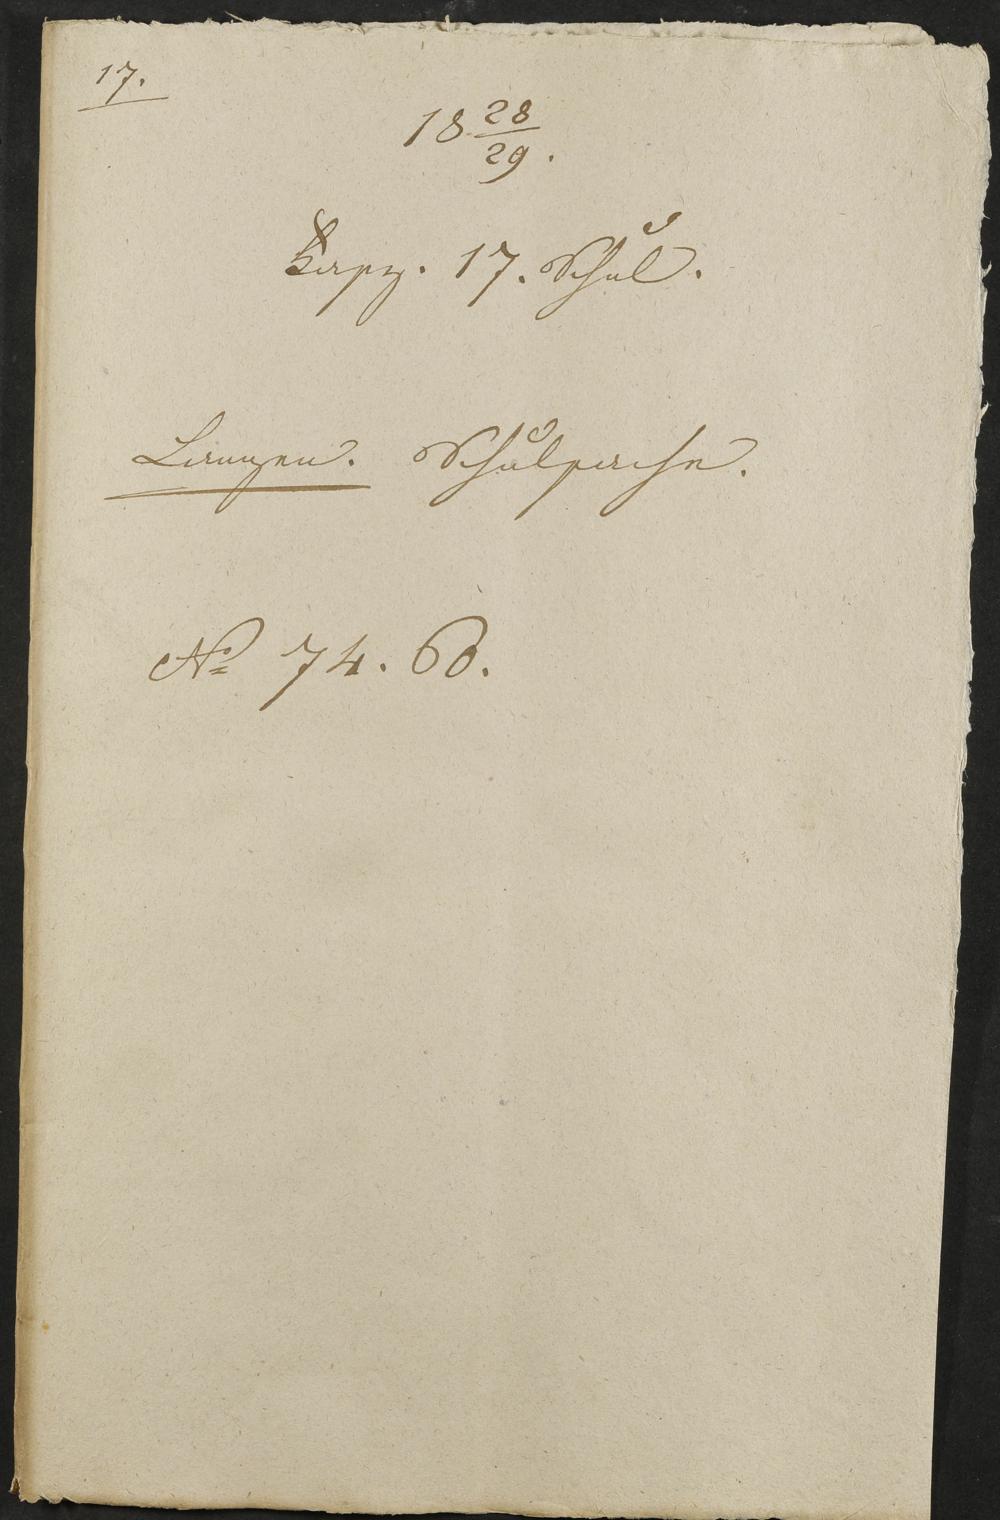 17.
18 28/29.
17. Schul.
Langen. Schulsache.
No 74. 60.